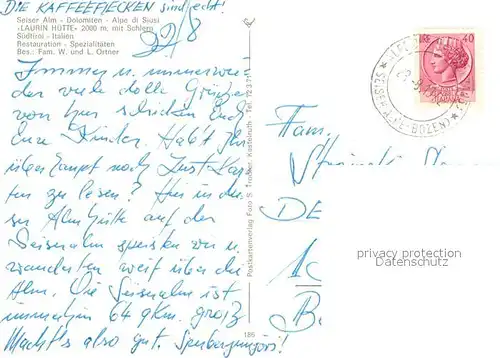 DIE KAFFEEFLECKEN sind echt!
Seiser Alm - Dolomiten - Alpe di Siusi
«LAURIN HÜTTE» 2000 m, mit Schlern
Südtirol - Italien
Restauration - Spezialitäten
Bes.: Fam. W. und L. Ortner
22/8
Immer u. immer wie-
der viele dolle Grüße
von hier schicken Euch
Eure Kinder. Habt Ihr
überhaupt noch Lust Kar-
ten zu lesen? Hier in die-
ser Almhütte auf der
Seiseralm speisten wir u.
wanderten weit über die
Alm. Die Seiseralm ist
immerhin 64 qkm. groß
Macht's also gut.
Postkartenverlag Foto S. Trocker, Kastelruth - Tel.
186
LIRE 40
BOZEN
Fam.
DE
B
privacy protection
Datenschutz